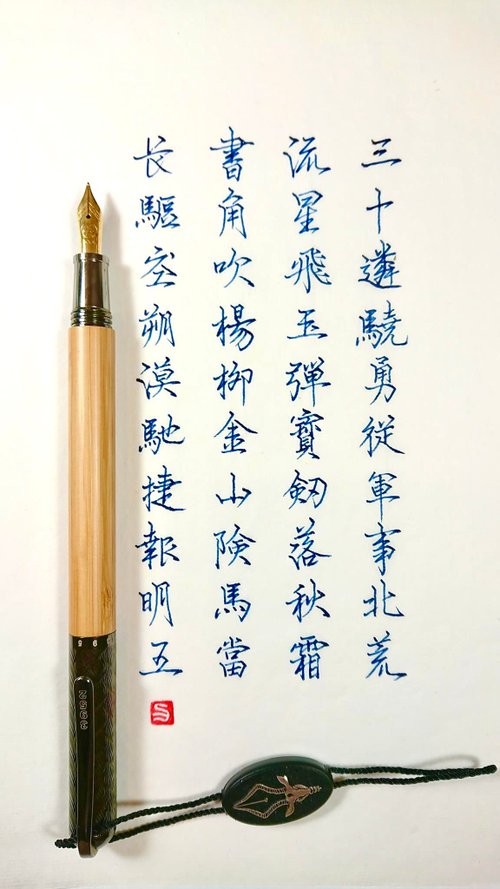 三十遴驍勇従軍事北荒
流星飛玉彈寶釼落秋霜
書角吹楊柳金山険馬當
长驅空朔漠馳捷報明五